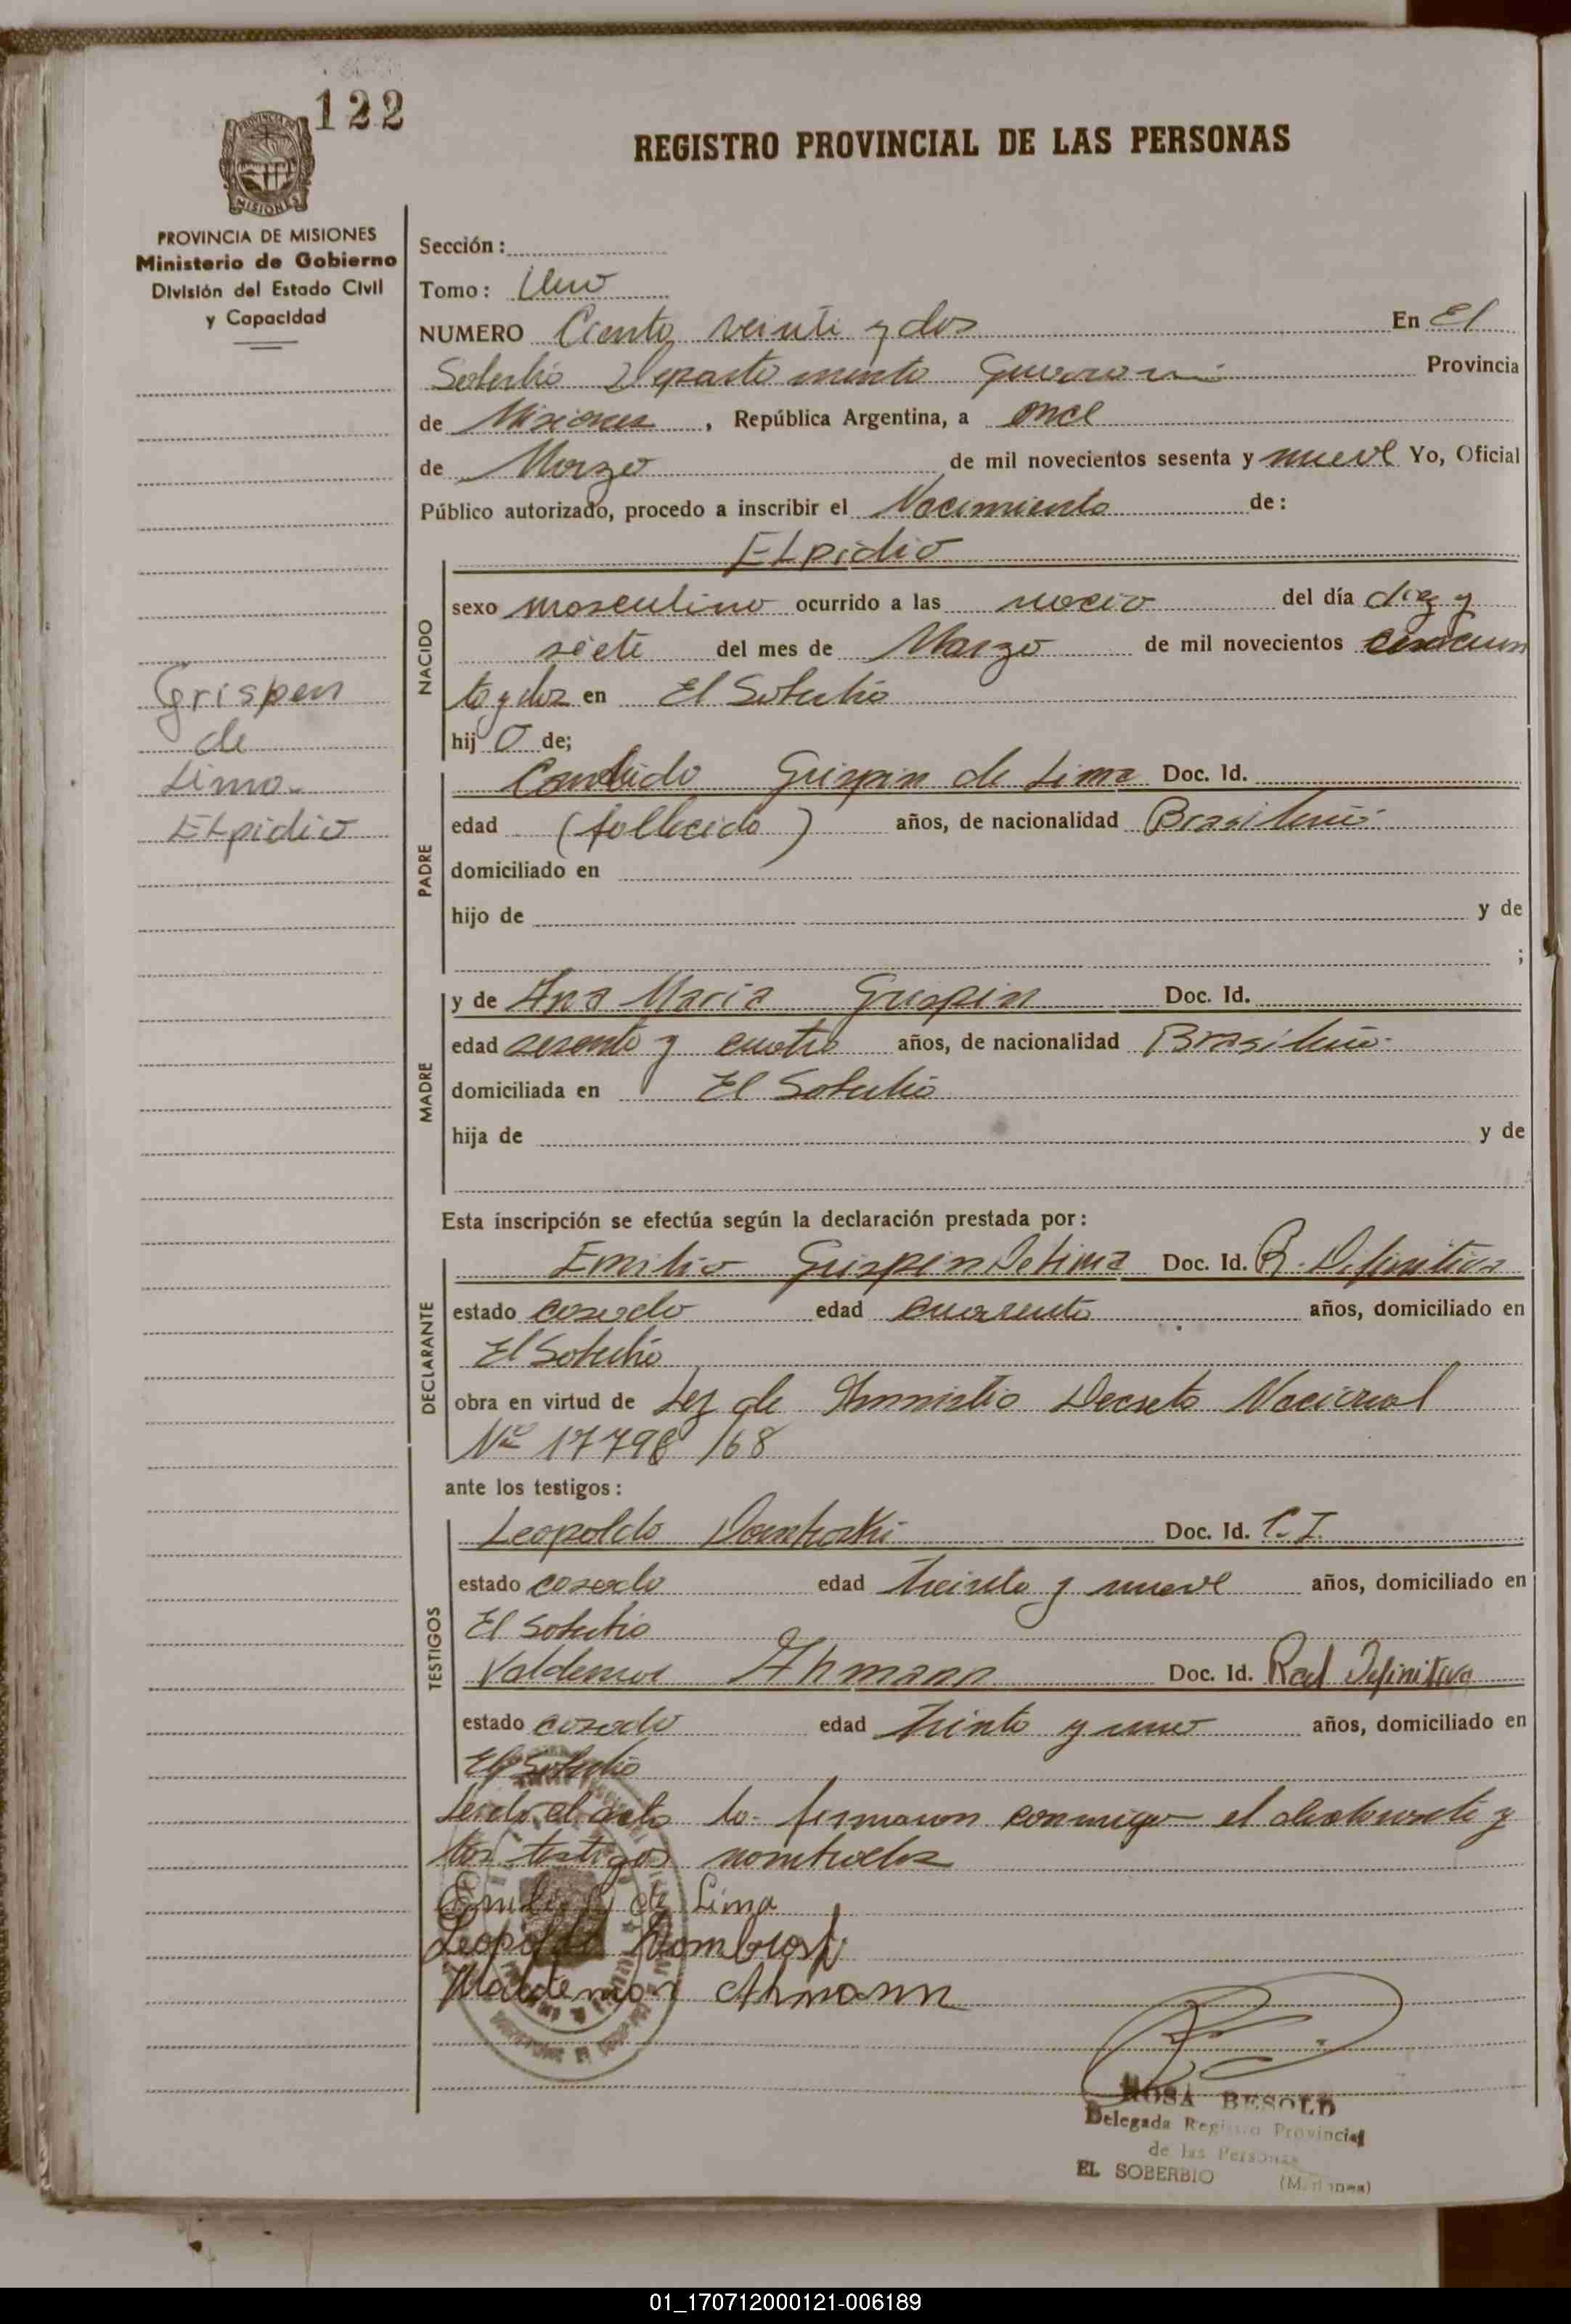 122
PROVINCIA DE MISIONES
Ministerio de Gobierno
División del Estado Civil
y Capacidad
Grispen
de
Lima
Elpidio
REGISTRO PROVINCIAL DE LAS PERSONAS
Sección:
Tomo: Uno
NUMERO Ciento veinti y dos En El
Soberbio Departamento Guarani Provincia
de Misiones, República Argentina, a once
de Marzo de mil novecientos sesenta y nueve Yo, Oficial
Público autorizado, procedo a inscribir el Nacimiento de:
Elpidio
NACIDO
sexo masculino ocurrido a las nacio del día diez y
siete del mes de Marzo de mil novecientos cincuen
ta y dos en El Soberbio
hij o de;
PADRE
Candido Grispin de Lima Doc. Id.
edad (fallecido) años, de nacionalidad Brasileño
domiciliado en
hijo de y de
;
MADRE
y de Ana Maria Grispin Doc. Id.
edad sesenta y cuatro años, de nacionalidad Brasileña
domiciliada en El Soberbio
hija de y de
Esta inscripción se efectúa según la declaración prestada por:
DECLARANTE
Emilio Grispin De Lima Doc. Id. R. Definitiva
estado casado edad cuarenta años, domiciliado en
El Soberbio
obra en virtud de Ley de Amnistia Decreto Nacional
Nº 17798/68
ante los testigos:
TESTIGOS
Leopoldo Dombroski Doc. Id. C. I.
estado casado edad treinta y nueve años, domiciliado en
El Soberbio
Valdemar Ahmann Doc. Id. Rad Definitiva
estado casado edad treinta y uno años, domiciliado en
El Soberbio
Leida el acta la firmaron conmigo el declarante y
los testigos nombrados
Emilio G de Lima
Leopoldo Dombroski
Waldemar Ahmann
ROSA BESOLD
Delegada Registro Provincial
de las Personas
EL SOBERBIO (Misiones)
01_170712000121-006189